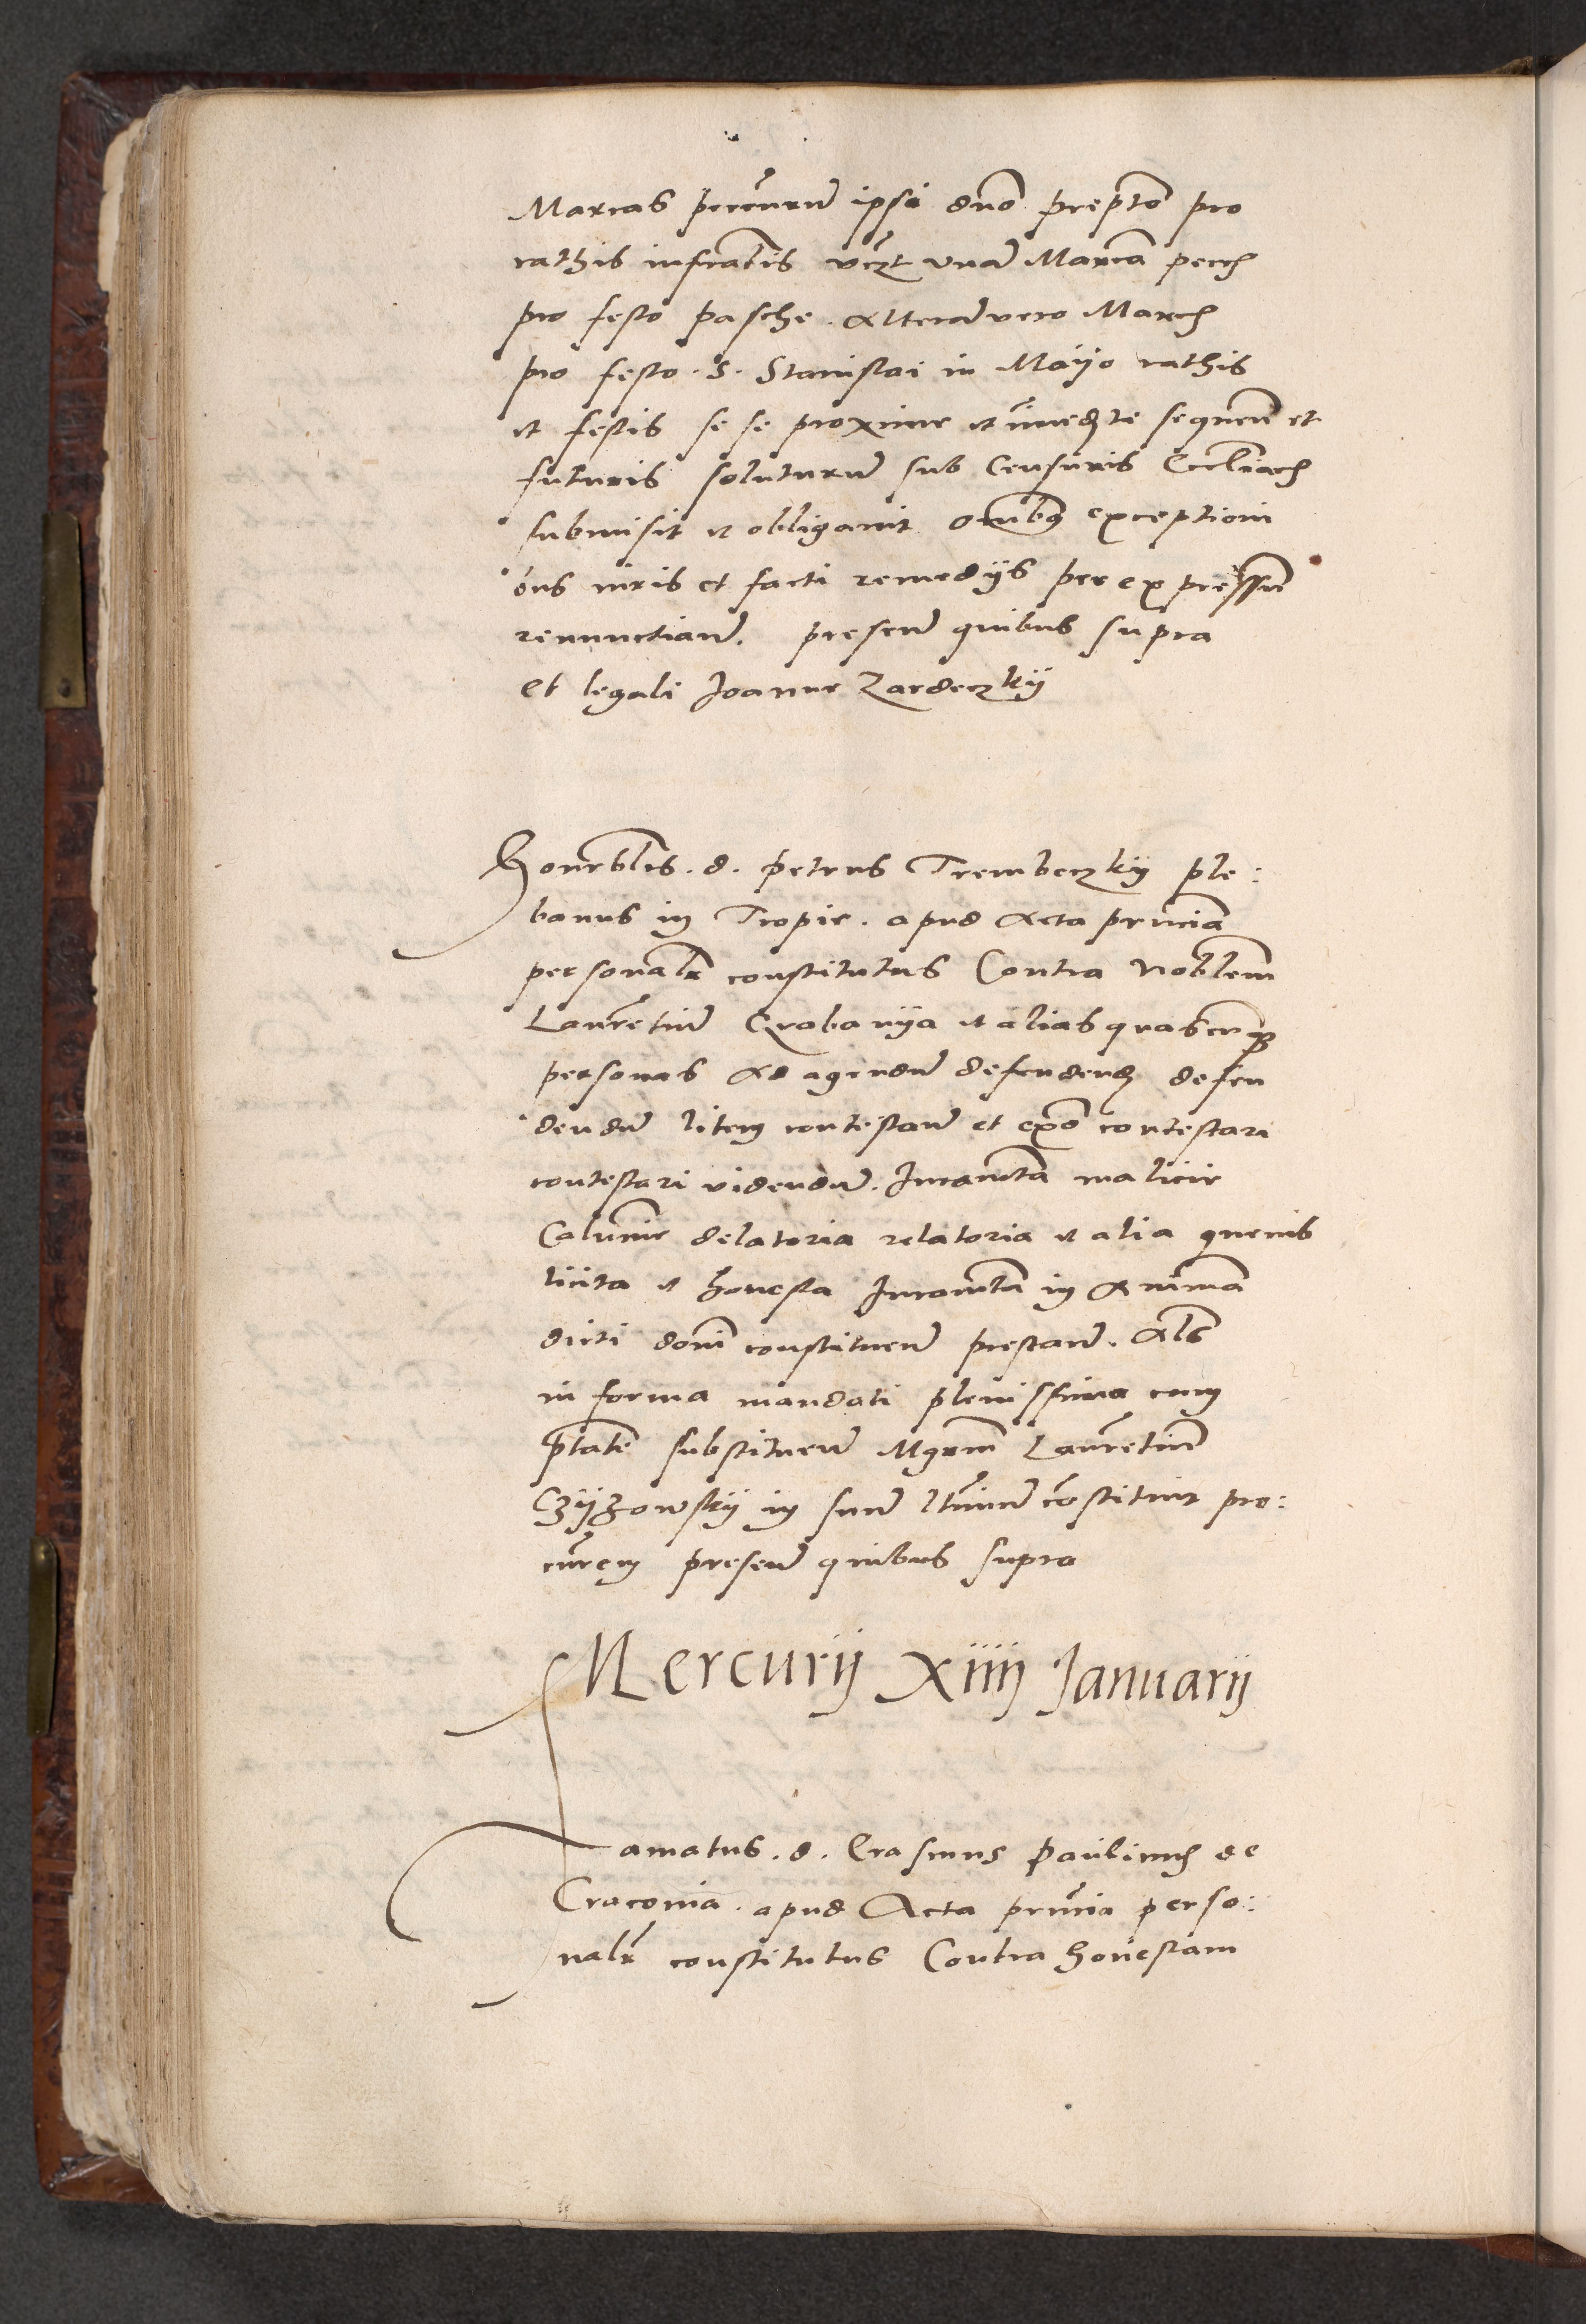 Marcas pecuniarum ipsi dno preposito pro
rathis infrascriptis vczt unam Marcam pecch
pro festo pasche. Alteram vero March
pro festo. S. Stanislai in Mayo rathis
et festis se se proxime et immediate sequen et
futuris soluturum sub Censuris Eccliach
submisit et obligavit omnibus exceptioni
bus iuris et facti remedijs per expressum
renunctian. presen quibus supra
et legali Joanne Zardeczky
Honorblis. d. petrus Trembeczky ple:
banus in Tropie. apud Acta prncia
personalr constitutus Contra Noblem
Laurentium Grabanya et alias quascunque
personas Ad agendum defendend defen
dendum litem contestan et ex adverso contestari
contestari videndum. Juramenta malicie
Calumnie delatoria relatoria et alia quevis
licita et honesta Juramenta in Animam
dicti domini constituen prestan. Als
in forma mandati plenissima cum
ptate substituen Mgrum Laurentium
Czyzowsky in suum ltimum constituit pro:
curem presen quibus supra
Mercurij XIIII Januarij
Famatus. d. Erasmus paulinus de
Craconia. apud Acta prncia perso:
nalr constitutus Contra honestam